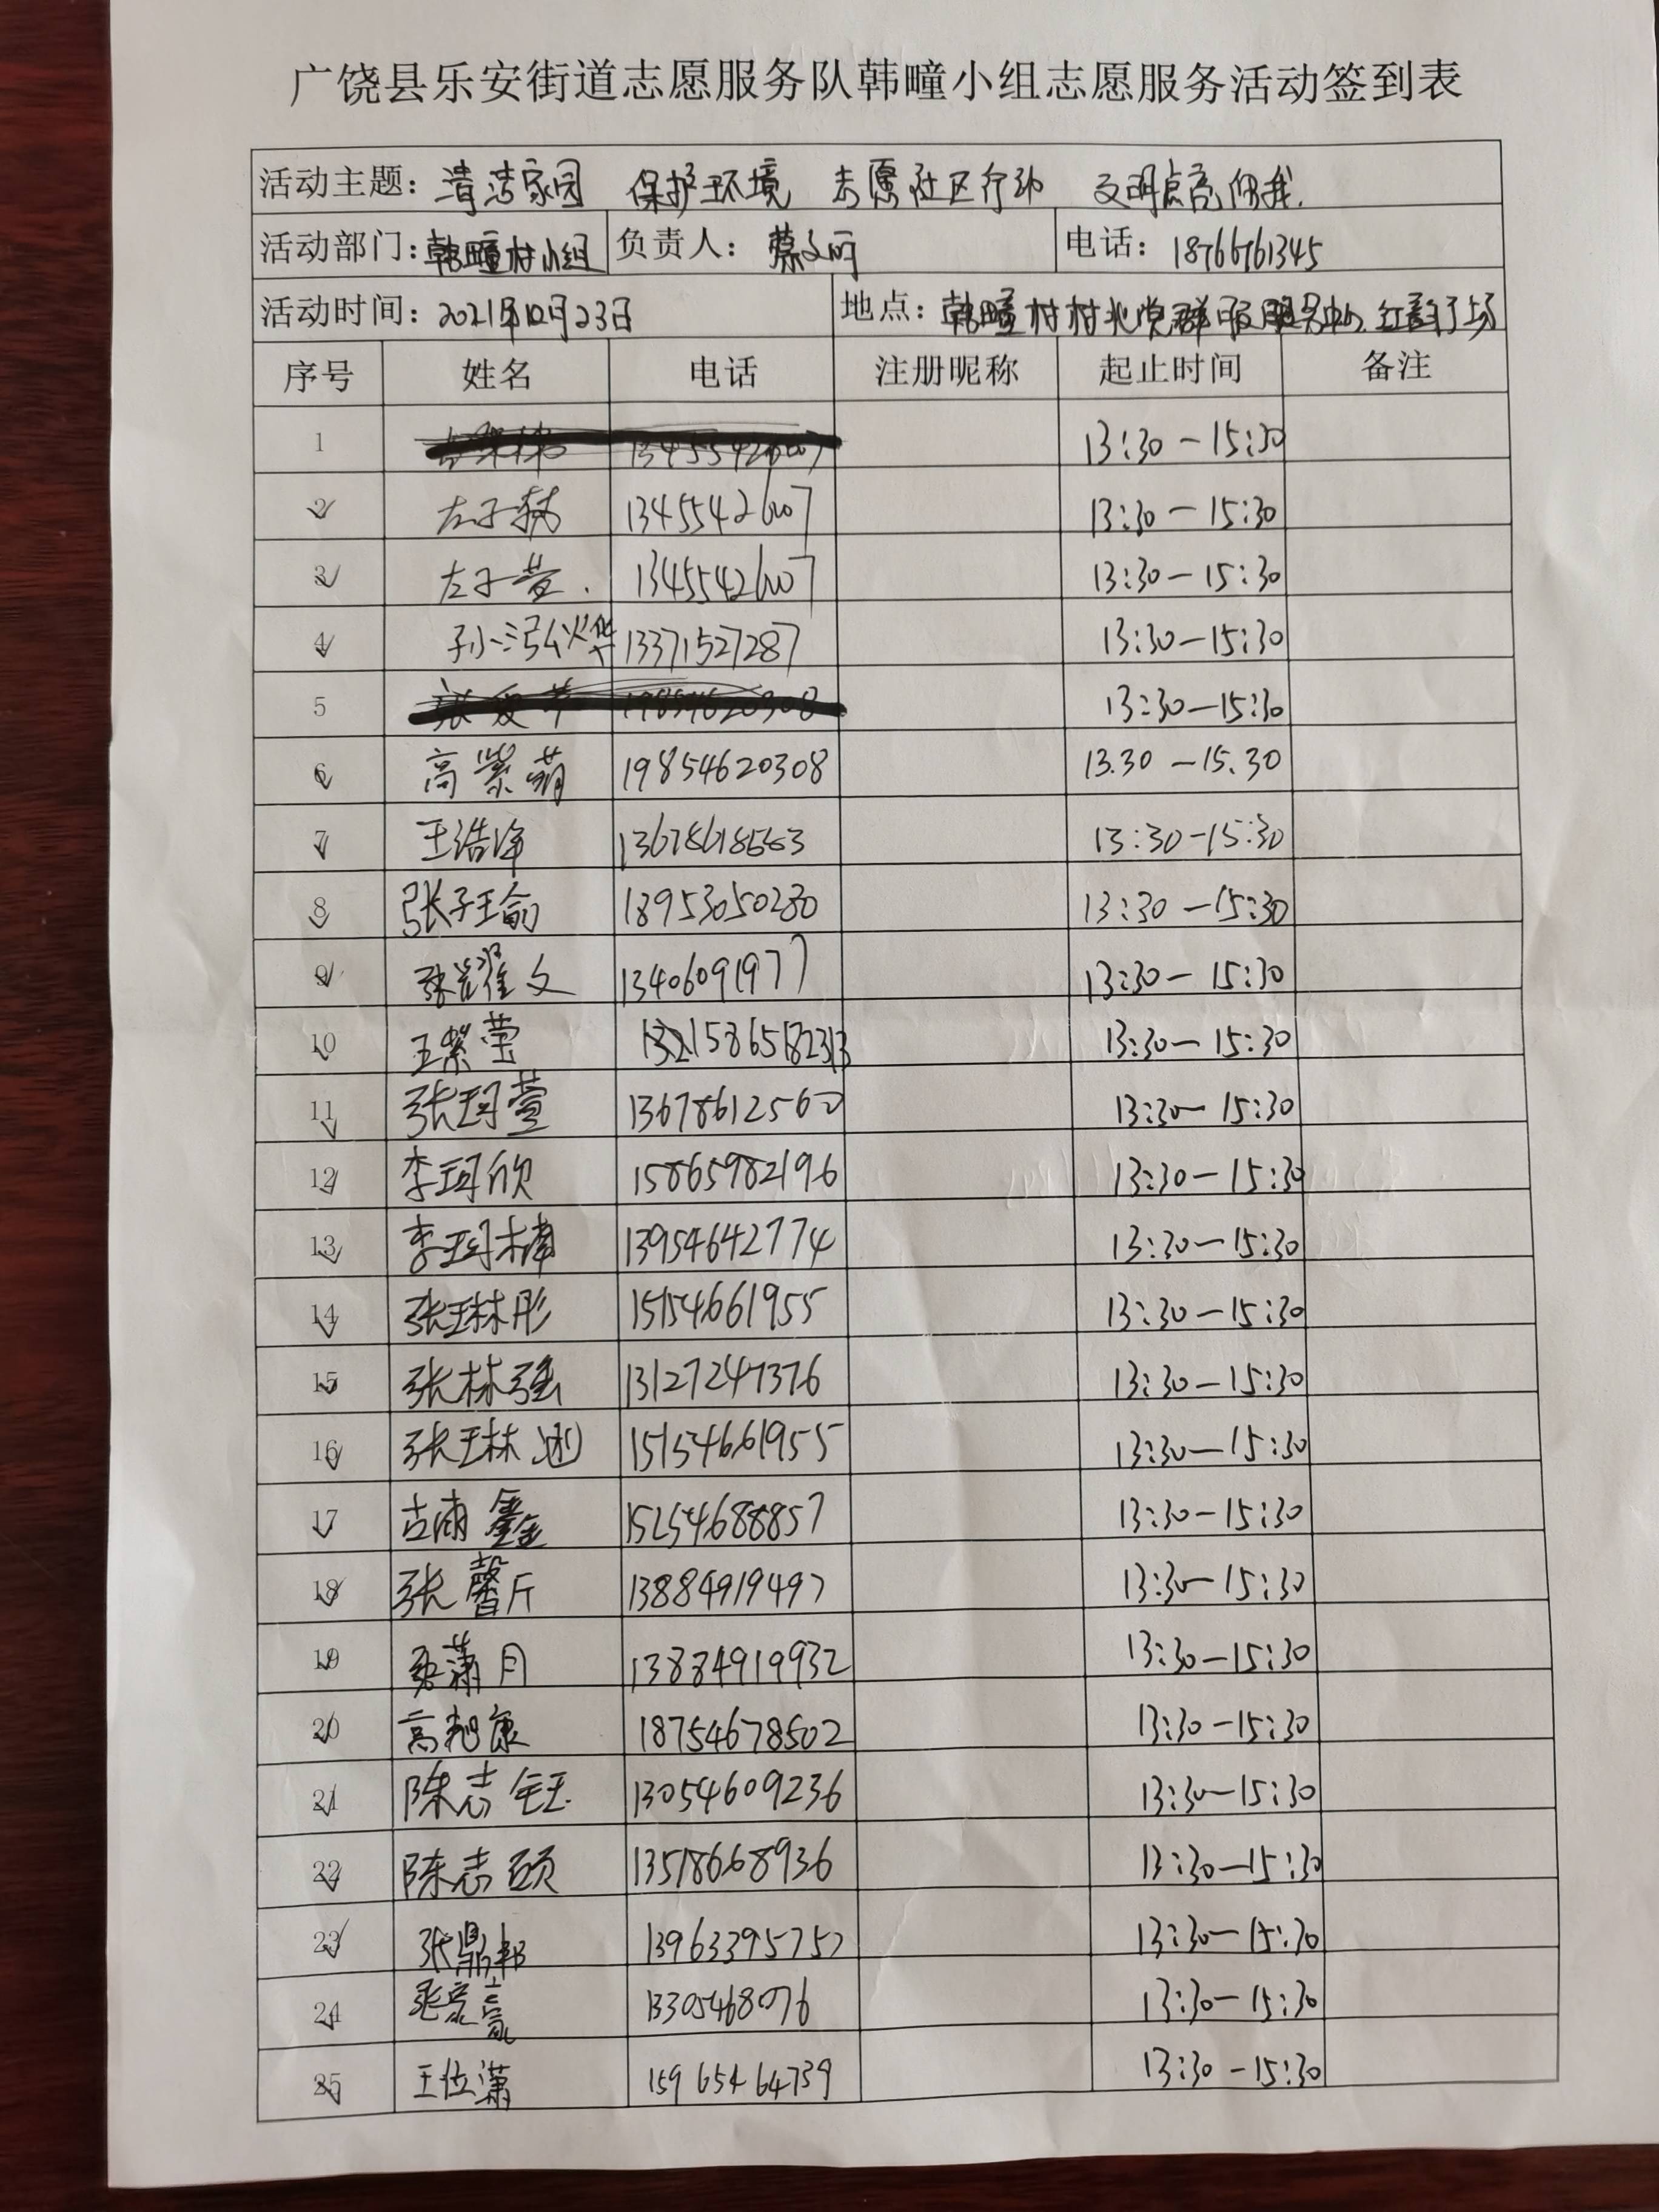 广饶县乐安街道志愿服务队韩疃小组志愿服务活动签到表
活动主题：清洁家园 保护环境 志愿社区行动 文明点亮你我.
活动部门：韩疃村小组 负责人：蔡文明 电话：18766761345
活动时间：2021年10月23日 地点：韩疃村村北党群服务中心、
序号 姓名 电话 注册昵称 起止时间 备注
1 13455426007 13:30-15:30
2 左子 13455426007 13:30-15:30
3 左子萱 13455426007 13:30-15:30
4 孙泓烨 13371527287 13:30-15:30
5 19854620308 13:30-15:30
6 高紫萌 19854620308 13.30-15.30
7 王浩 13:30-15:30
8 张子瑜 18953050280 13:30-15:30
9 张耀文 13406091977 13:30-15:30
10 王紫莹 13:30-15:30
11 张珂萱 13678612560 13:30-15:30
12 李珂欣 15865982196 13:30-15:30
13 李珂 13954642774 13:30-15:30
14 张琳彤 15154661955 13:30-15:30
15 张林强 13127247376 13:30-15:30
16 张琳 15154661955 13:30-15:30
17 古雨鑫 15254688857 13:30-15:30
18 张馨斤 13884919497 13:30-15:30
19 张潇月 13884919932 13:30-15:30
20 高旭康 18754678502 13:30-15:30
21 陈志钰 13054609236 13:30-15:30
22 陈志硕 13518668936 13:30-15:30
23 张鼎邦 13963395752 13:30-15:30
24 13305468076 13:30-15:30
25 王位潇 15965464739 13:30-15:30